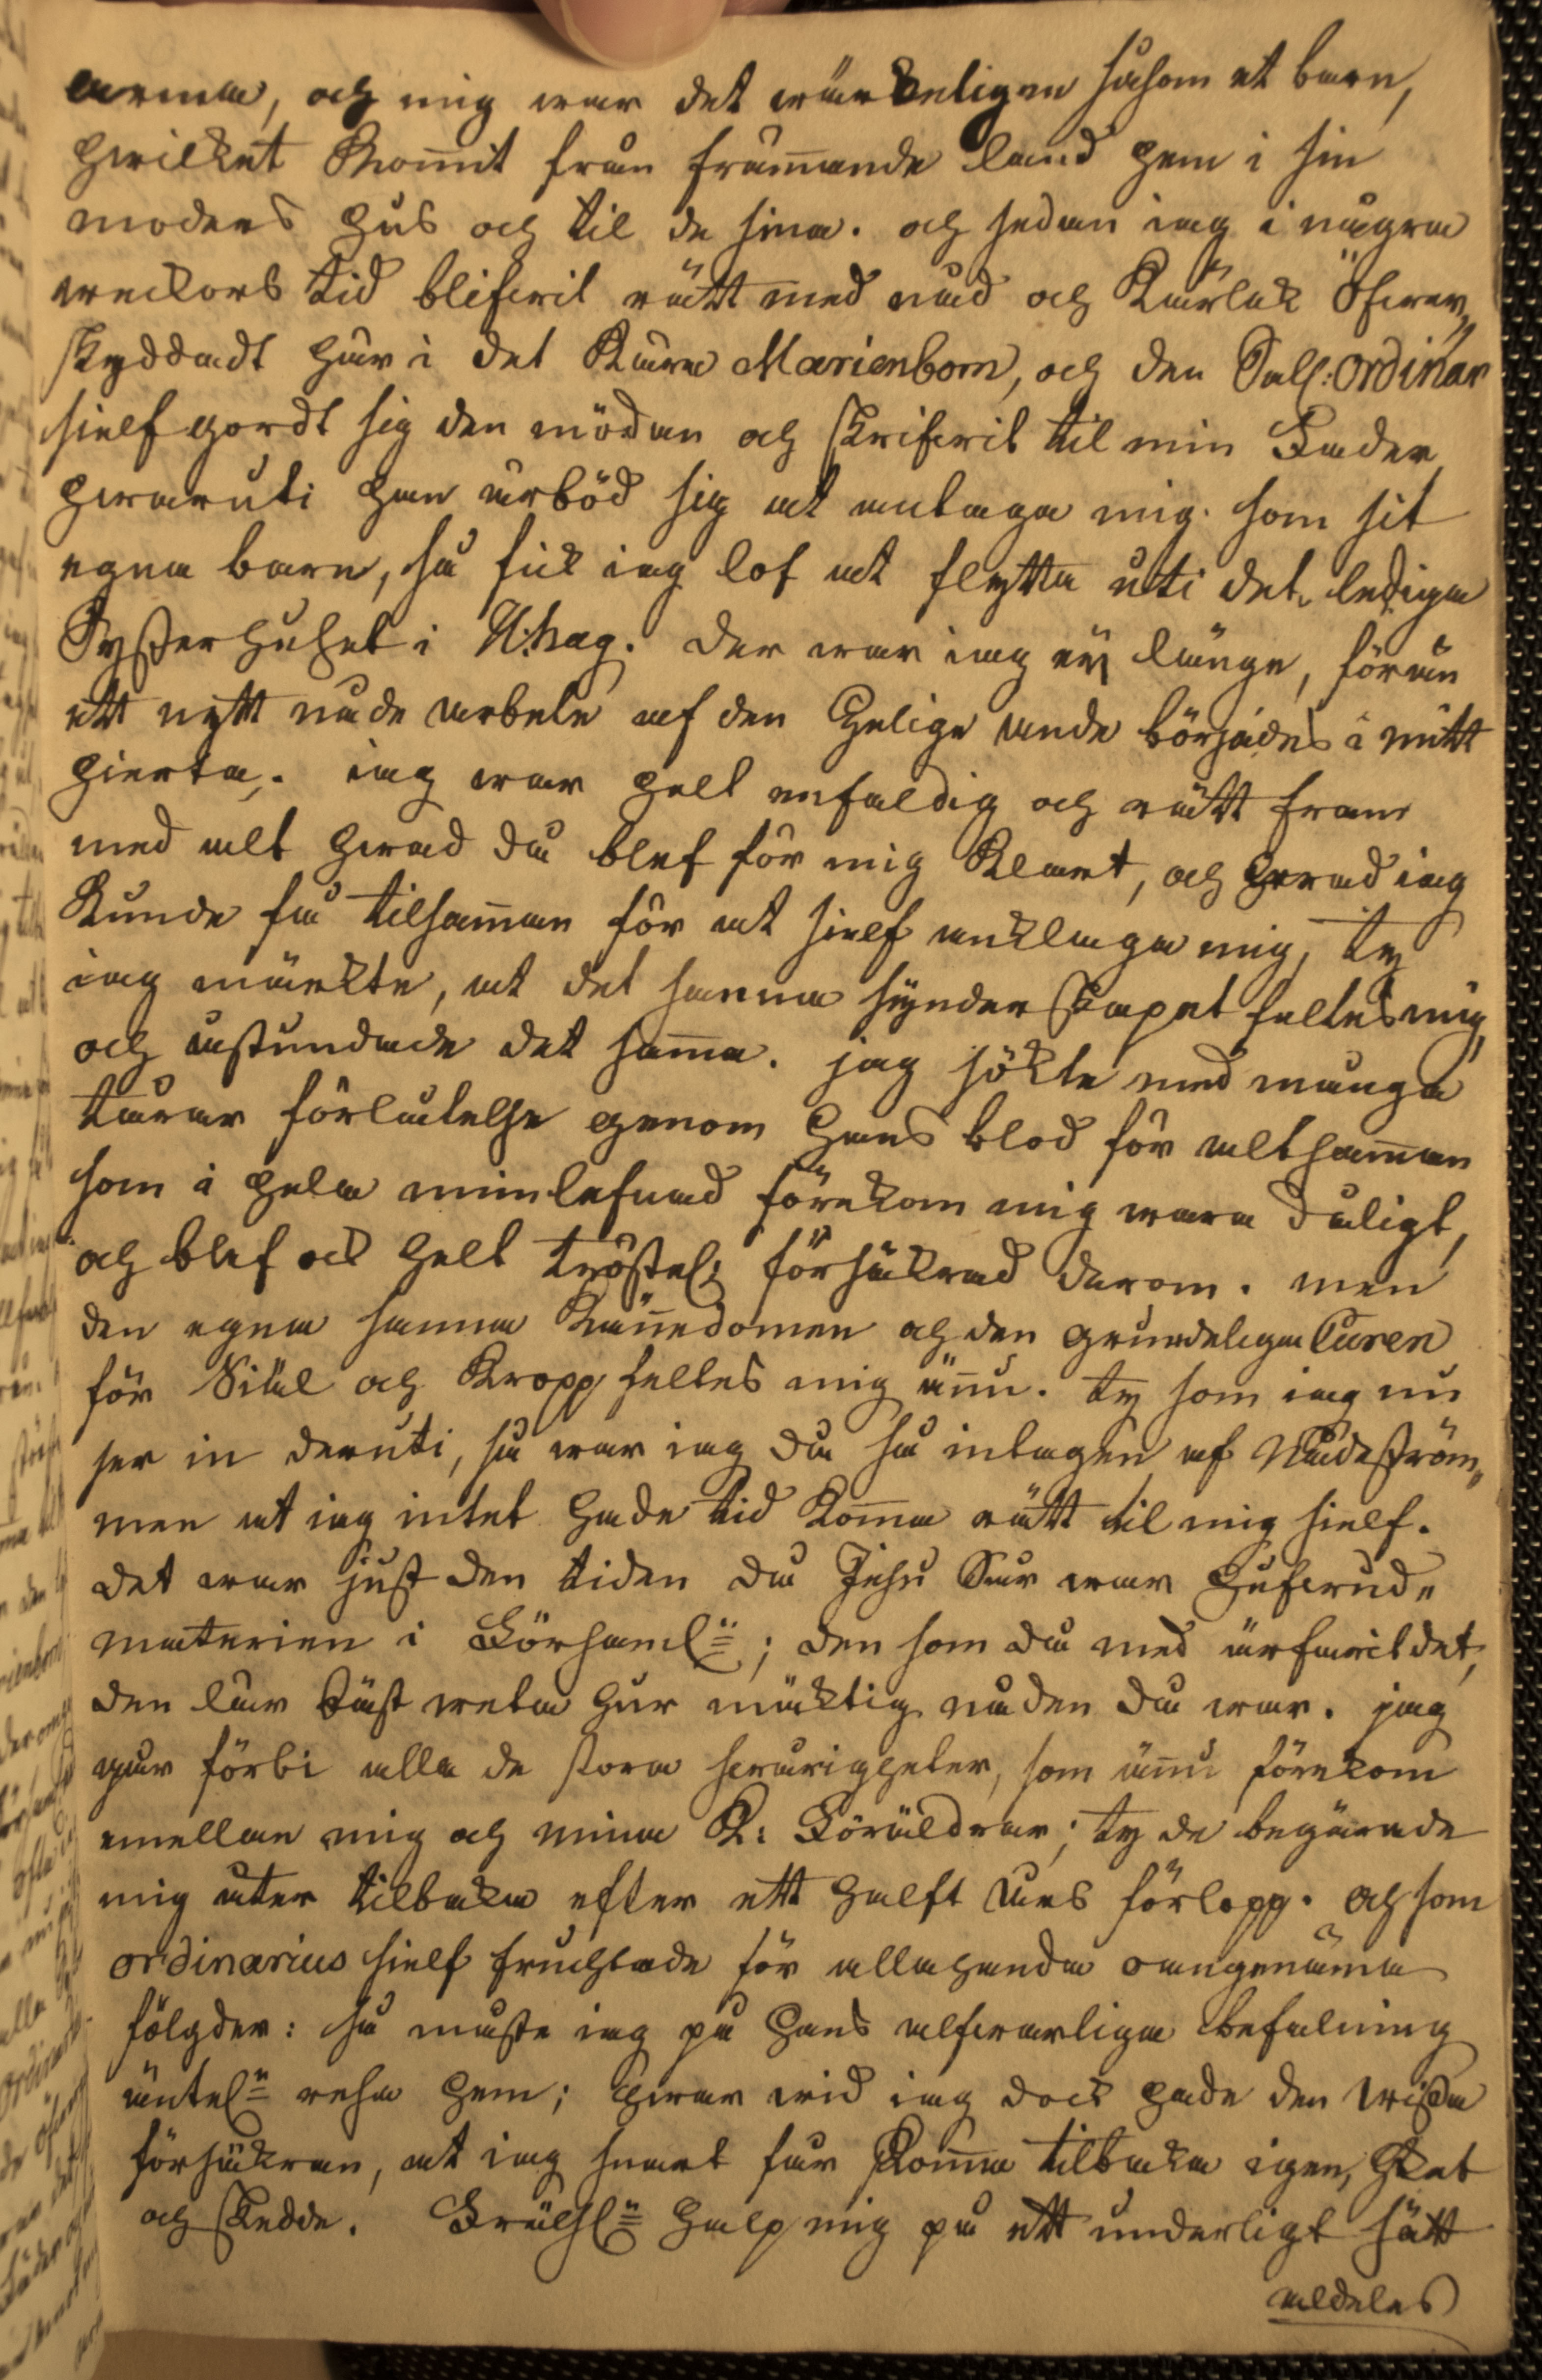 arma, och mig war det wärkeligen såsom et barn,
hwilket kom̄it från främande land hem i sin
moders hus och til de sina. och sedan iag i några
weckors tid blifwit rätt med nåd och kärlek öfwer,,
skyddadt har i det kära Marienborn, och den Sall: Ordinar
sielf gordt sig den mödan och skrifwit til min Fader
hwaruti han urböd sig at antaga mig som sit
egna barn, så fick iag lof at flytta uti det lediga
Systerhuset i H:hag. der war iag ey länge, förän
ett nytt nåde arbete af den Helige ande börjades i mitt
hierta. iag war helt enfaldig och rätt fram
med alt hwad då blef för mig klart, och hwad iag
kunde få tilsam̄an för at sielf anklaga mig, ty
iag märkte, at det sanna synderskapet feltes mig
och åstundade det sam̄a. jag sökte med många
tårar förlåtelse genom Hans blod för altsam̄an
som i hela min lefnad förekom mig wara dåligt,
och blef ock helt tröstel: försäkrad derom. men
den egna sanna kän̄edomen och den grundeliga Curen
för Siäl och kropp feltes mig än̄u. ty som iag nu
ser in deruti, så war iag då så intagen af Nådeström,,
men at iag intet hade tid kom̄a rätt til mig sielf.
det war just den tiden då Jesu Sår war Hufwud,,
materien i Församl:n; den som då med ärfarit det,
den lär bäst weta hur mäktig nåden då war. jag
går förbi alla de stora swårigheter, som än̄u förekom
emellan mig och mina K: Föräldrar; ty de begärade
mig åter tilbaka efter ett halft års förlopp. och som
ordinarius sielf fruchtade för allahanda oangenäma
fölgder: så måste iag på hans alfwarliga befalning
äntel:n resa hem; hwar wid iag dock hade den wissa
försäkran, at iag snart får kom̄a tilbaka igen, Sket
och skedde. Frälsl:n halp mig på ett underligt sätt
aldeles